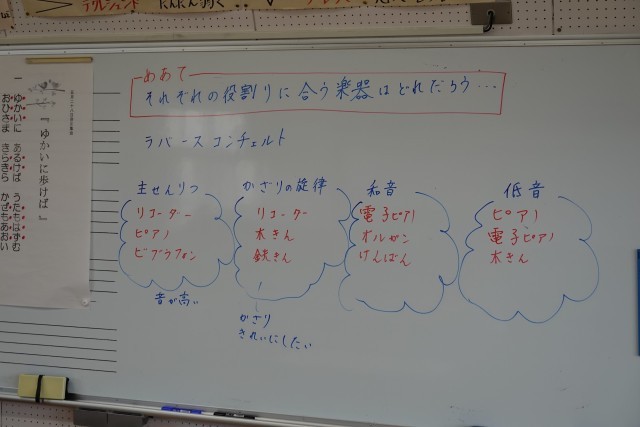 クレッシェンド
めあて
それぞれの役割りに合う楽器はどれだろう…
ラバースコンチェルト
主せんりつ
リコーダー
ピアノ
ビブラフォン
音が高い
かざりの旋律
リコーダー
木きん
鉄きん
かざり
きれいにしたい
和音
電子ピアノ
オルガン
けんばん
低音
ピアノ
電子ピアノ
木きん
『ゆかいに歩けば』
一 ゆかいに あるけば うたもはずむ
おひさま きらきら かぜもあおい